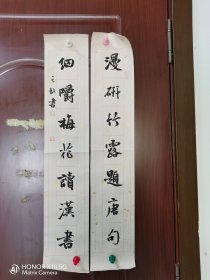 漫研竹露題唐句
細嚼梅花讀漢書
HONOR X10 5G
Matrix Camera